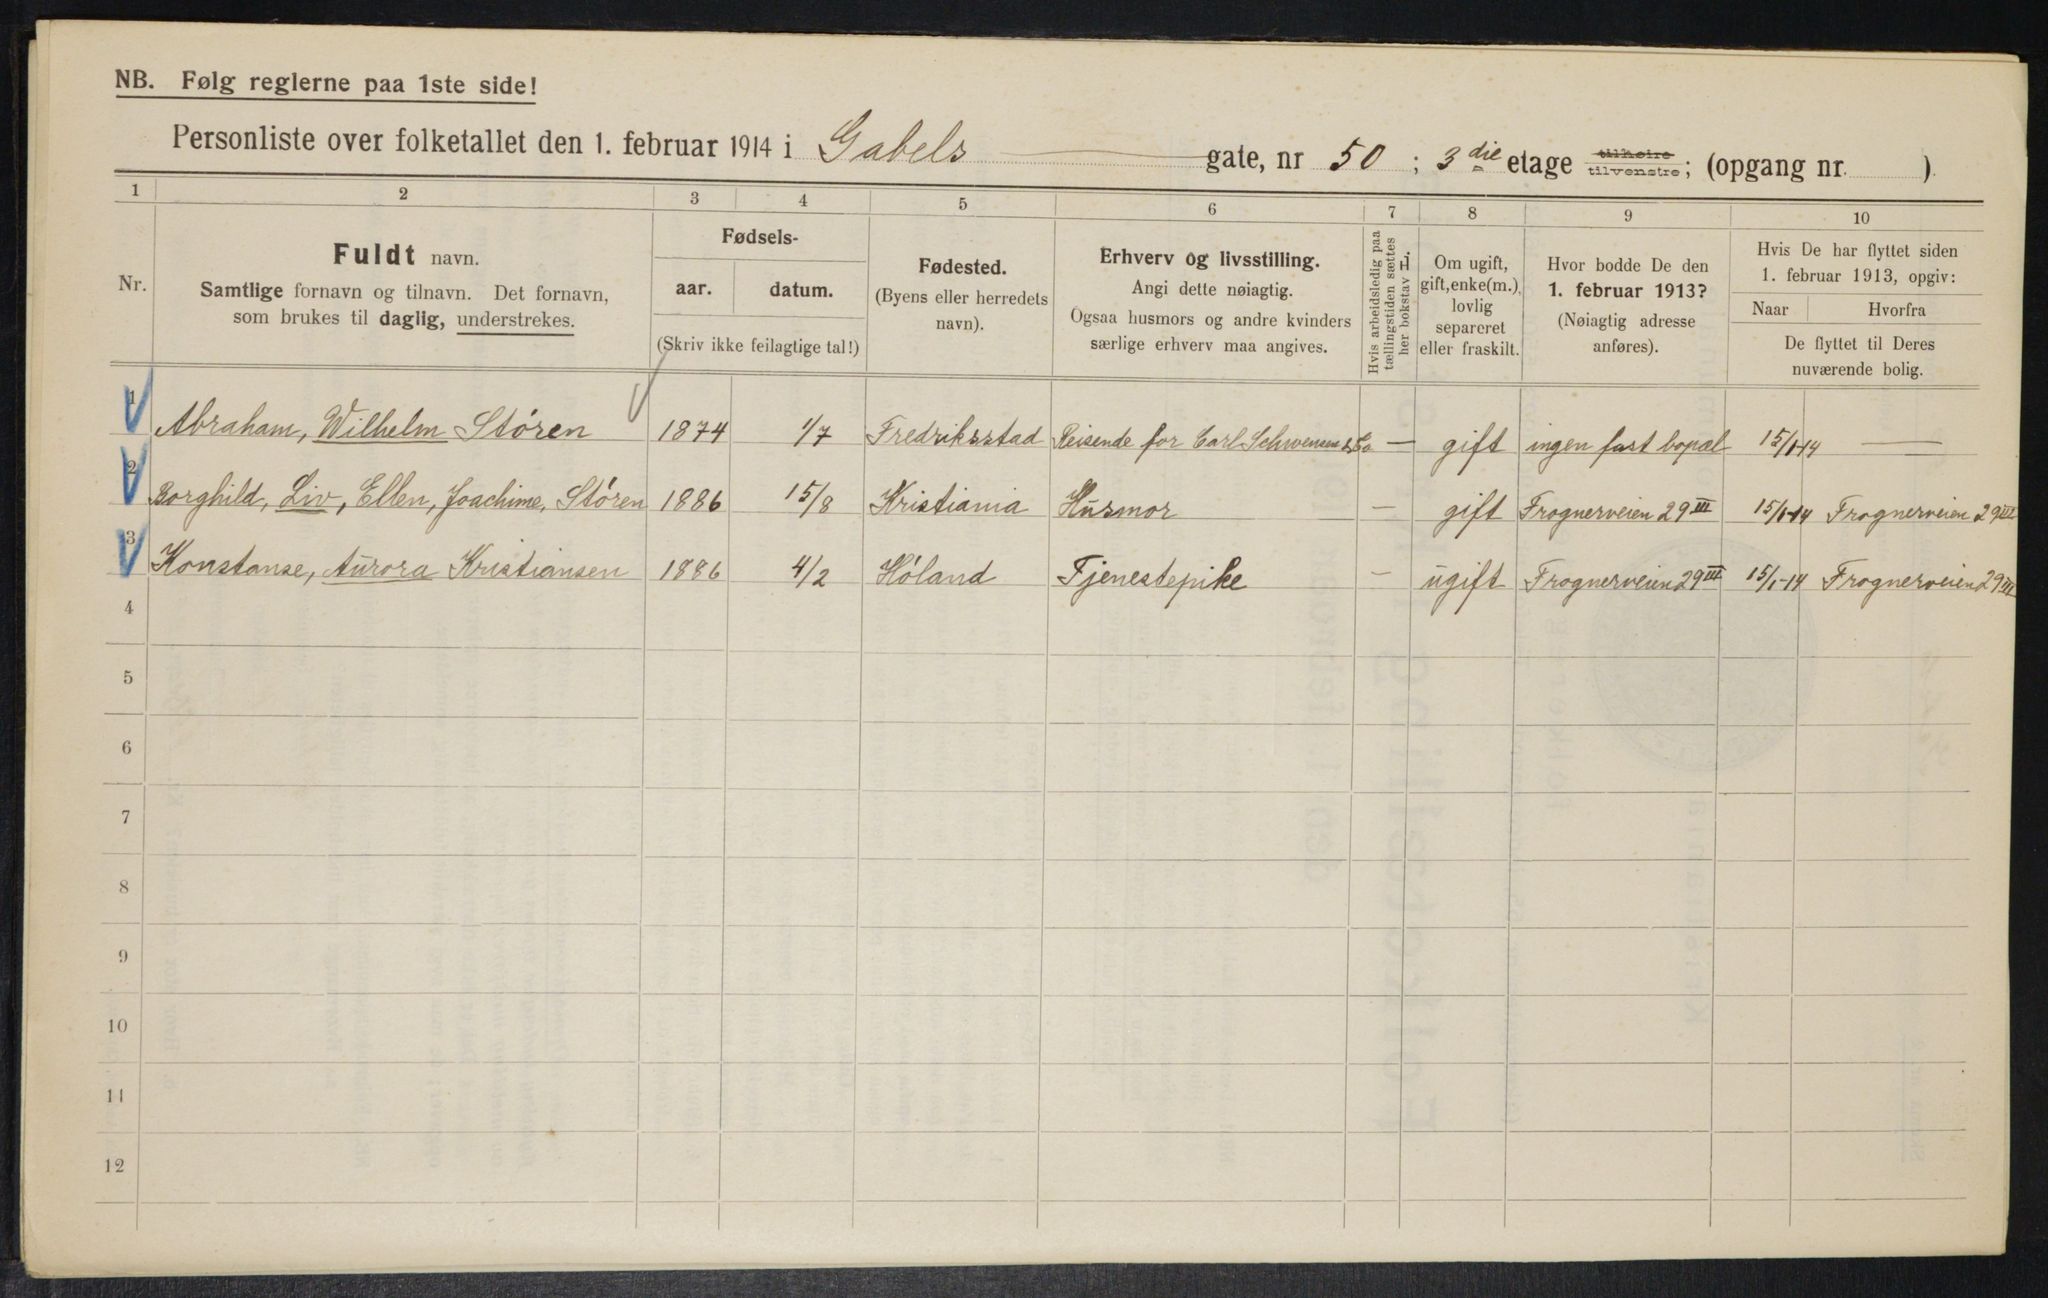 NB. Følg reglerne paa 1ste side!
Personliste over folketallet den 1. februar 1914 i Gabels gate, nr 50 ; 3 die etage tilhøire tilvenstre; (opgang nr. )
1 2 3 4 5 6 7 8 9 10
Nr.
Fuldt navn.
Samtlige fornavn og tilnavn. Det fornavn,
som brukes til daglig, understrekes.
Fødsels-
aar. datum.
(Skriv ikke feilagtige tal!)
Fødested.
(Byens eller herredets
navn).
Erhverv og livsstilling.
Angi dette nøiagtig.
Ogsaa husmors og andre kvinders
særlige erhverv maa angives.
Hvis arbeidsledig paa
tællingstiden sættes
her bokstav L.
Om ugift,
gift, enke(m.),
lovlig
separeret
eller fraskilt.
Hvor bodde De den
1. februar 1913?
(Nøiagtig adresse
anføres).
Hvis De har flyttet siden
1. februar 1913, opgiv:
Naar Hvorfra
De flyttet til Deres
nuværende bolig.
1 Abraham, Wilhelm Stören 1874 1/7 Fredriksstad Reisende for Carl Schwensen & Co — gift ingen fast bopæl 15/1-14 —
2 Borghild, Liv, Ellen, Joachime, Stören 1886 15/8 Kristiania Husmor — gift Frognerveien 29 III 15/1-14 Frognerveien 29 III
3 Konstanse, Aurora Kristiansen 1886 4/2 Höland Tjenestepike — ugift Frognerveien 29 III 15/1-14 Frognerveien 29 III
4
5
6
7
8
9
10
11
12